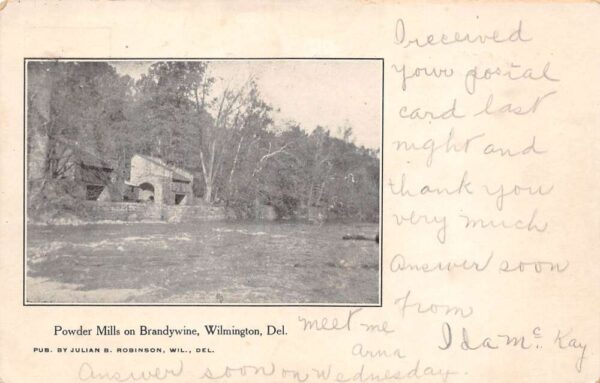 I received
your postal
card last
night and
thank you
very much
Answer soon
from
Ida Mc Kay
Powder Mills on Brandywine, Wilmington, Del.
PUB. BY JULIAN B. ROBINSON, WIL., DEL.
meet me
Anna
Answer soon on Wednesday.